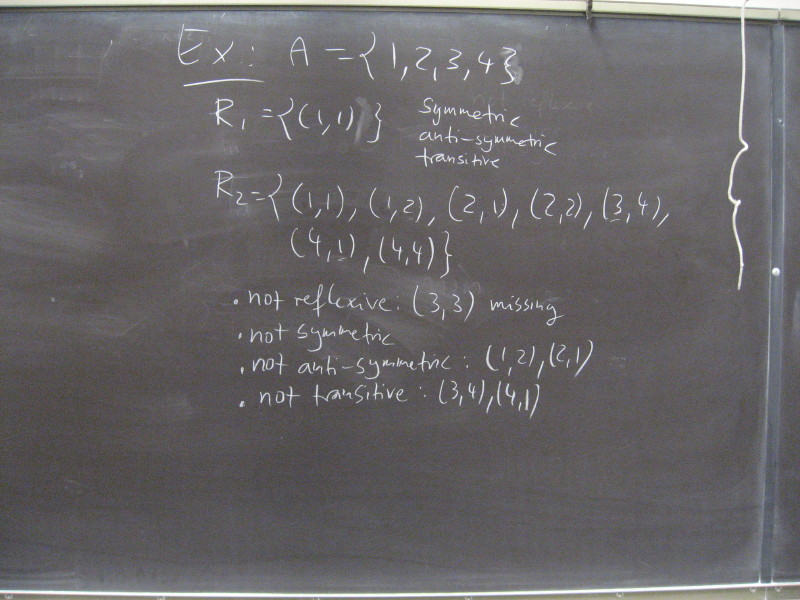 Ex: A = {1, 2, 3, 4}
R₁ = {(1,1)} symmetric
anti-symmetric
transitive
R₂ = {(1,1), (1,2), (2,1), (2,2), (3,4),
(4,1), (4,4)}
. not reflexive: (3,3) missing
. not symmetric
. not anti-symmetric: (1,2), (2,1)
. not transitive: (3,4), (4,1)